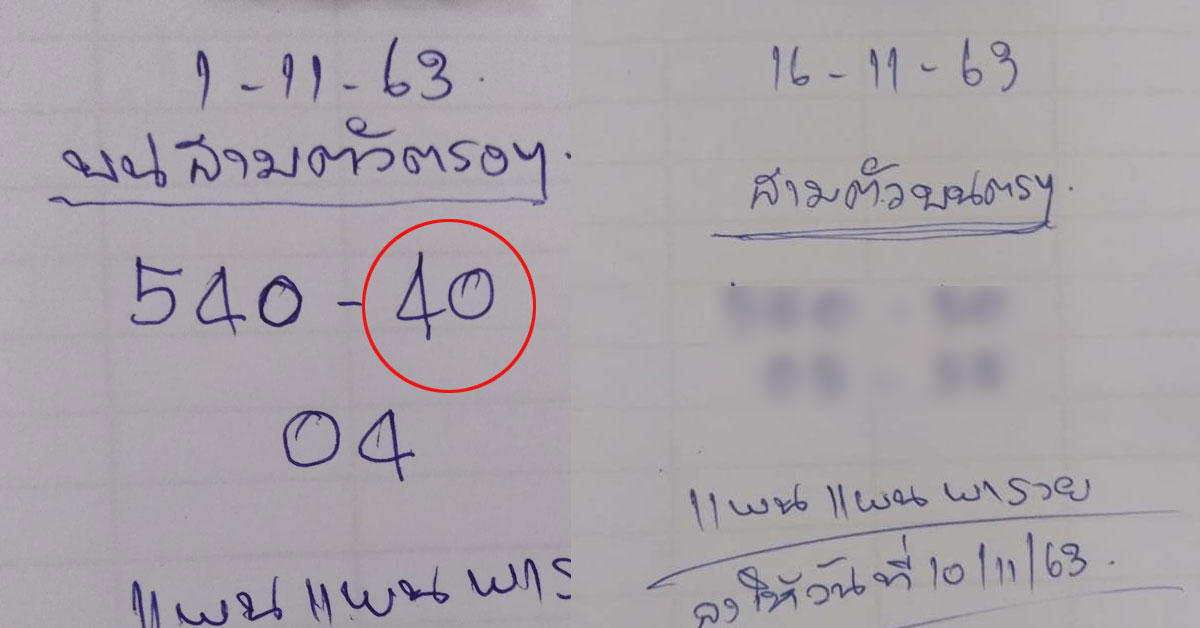 1-11-63.
บนสามตัวตรงๆ.
540-40
04
แพน แพน พาร
16-11-63
สามตัวบนตรงๆ.
แพน แพน พารวย
ลงให้วันที่ 10/11/63.